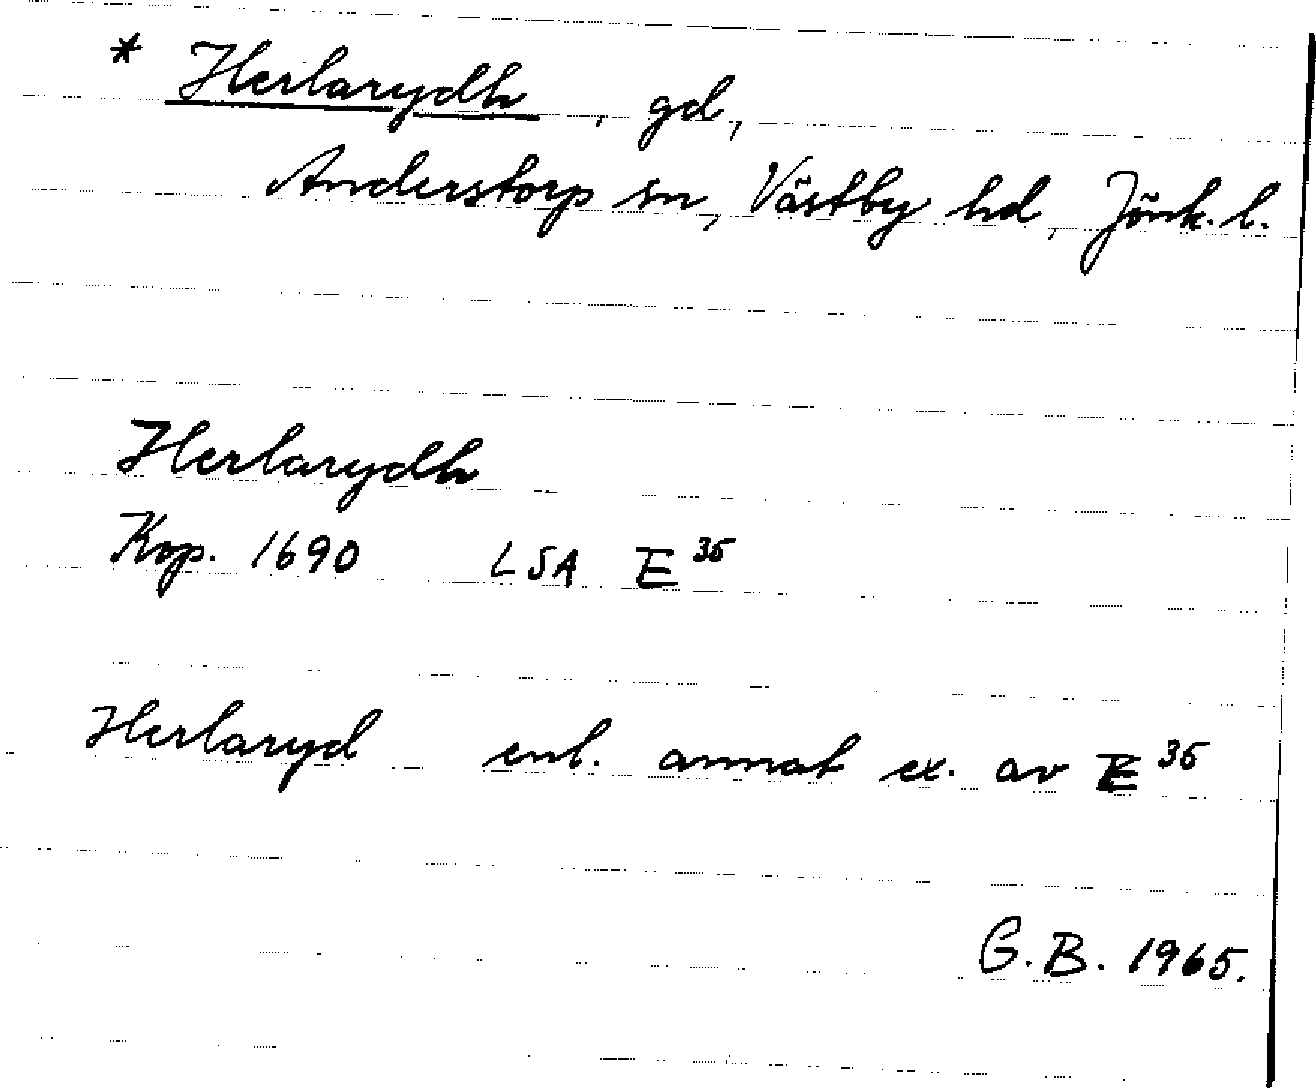 * Herlarydh, gd,
Anderstorp sn, Västby hd, Jönk. l.
Herlarydh
Kop. 1690 LSA E 35
Herlaryd enl. annat ex. av E 35
G.B. 1965.